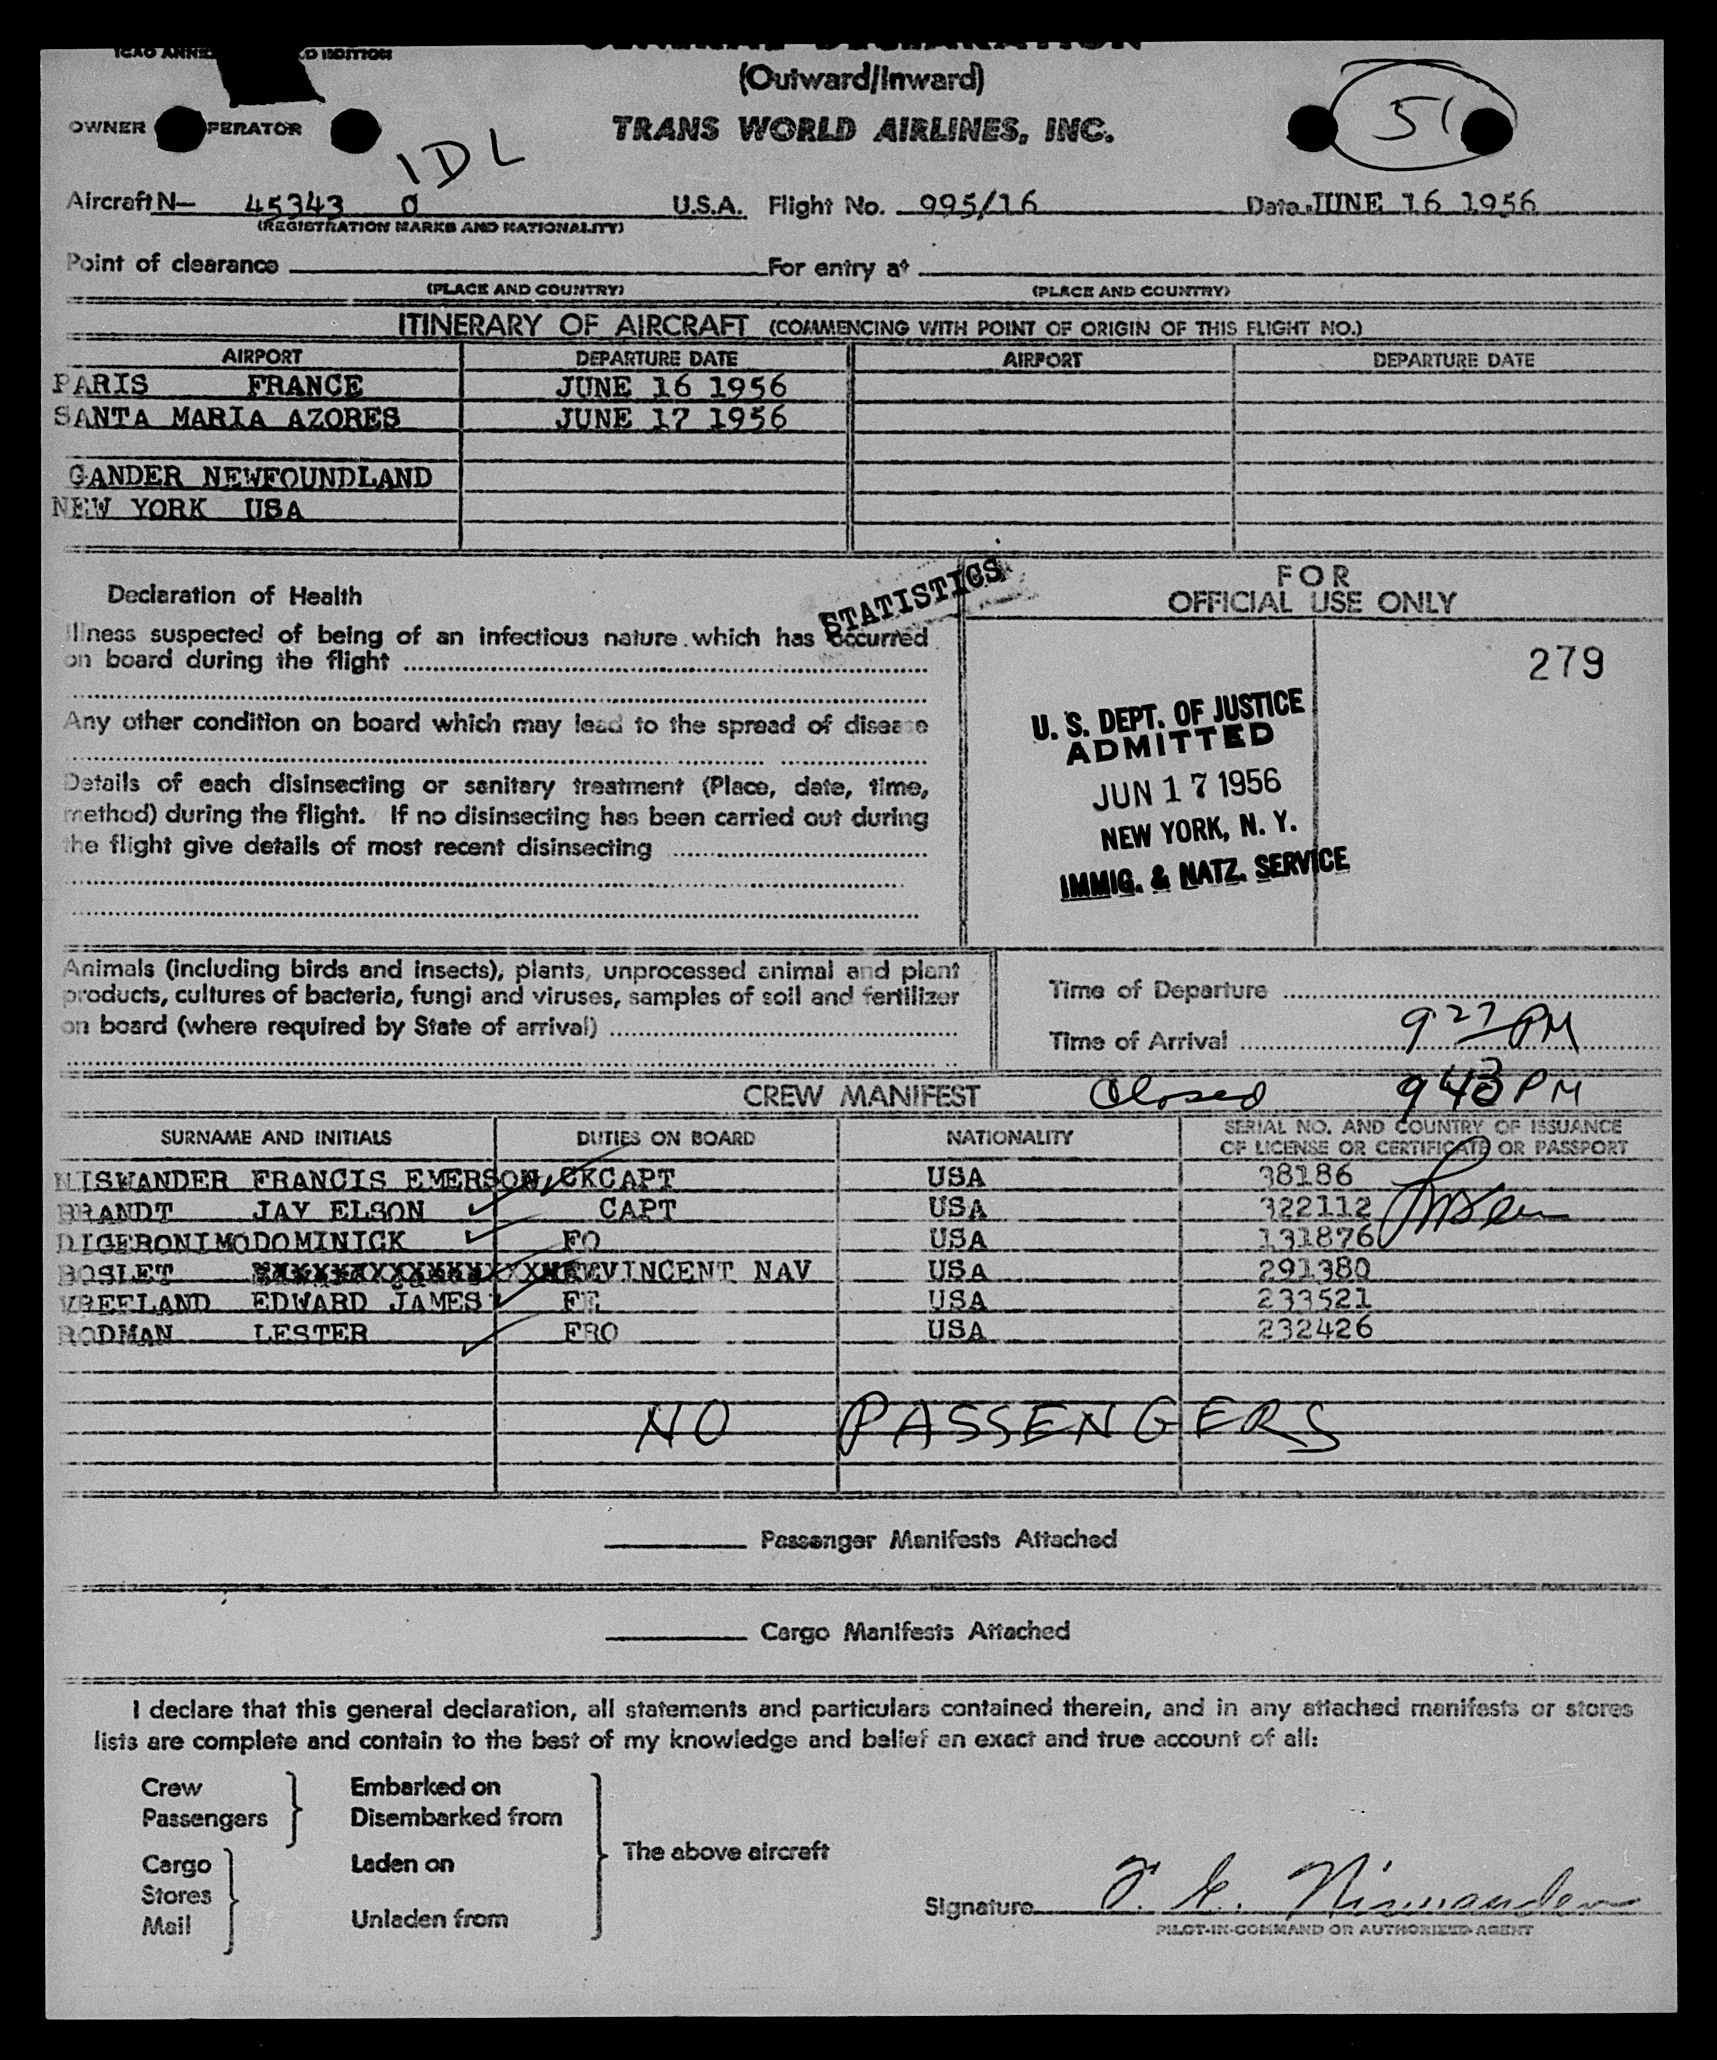 ICAO ANNE D EDITION
GENERAL DECLARATION
(Outward/Inward)
OWNER PERATOR
TRANS WORLD AIRLINES, INC.
51
IDL
Aircraft N— 45343 0 U.S.A. Flight No. 995/16 Date JUNE 16 1956
(REGISTRATION MARKS AND NATIONALITY)
Point of clearance For entry at
(PLACE AND COUNTRY) (PLACE AND COUNTRY)
ITINERARY OF AIRCRAFT (COMMENCING WITH POINT OF ORIGIN OF THIS FLIGHT NO.)
AIRPORT DEPARTURE DATE AIRPORT DEPARTURE DATE
PARIS FRANCE JUNE 16 1956
SANTA MARIA AZORES JUNE 17 1956
GANDER NEWFOUNDLAND
NEW YORK USA
STATISTICS
FOR
OFFICIAL USE ONLY
Declaration of Health
Illness suspected of being of an infectious nature which has occurred
on board during the flight
279
Any other condition on board which may lead to the spread of disease
Details of each disinsecting or sanitary treatment (Place, date, time,
method) during the flight. If no disinsecting has been carried out during
the flight give details of most recent disinsecting
U. S. DEPT. OF JUSTICE
ADMITTED
JUN 17 1956
NEW YORK, N. Y.
IMMIG. & NATZ. SERVICE
Animals (including birds and insects), plants, unprocessed animal and plant
products, cultures of bacteria, fungi and viruses, samples of soil and fertilizer
on board (where required by State of arrival)
Time of Departure
Time of Arrival 9 27 PM
CREW MANIFEST Closed 9 43 PM
SURNAME AND INITIALS DUTIES ON BOARD NATIONALITY SERIAL NO. AND COUNTRY OF ISSUANCE
OF LICENSE OR CERTIFICATE OR PASSPORT
NISWANDER FRANCIS EMERSON CKCAPT USA 38186
BRANDT JAY ELSON CAPT USA 322112
DIGERONIMODOMINICK FO USA 131876
BOSLET VINCENT NAV USA 291380
VREELAND EDWARD JAMES FE USA 233521
RODMAN LESTER FRO USA 232426
NO PASSENGERS
Passenger Manifests Attached
Cargo Manifests Attached
I declare that this general declaration, all statements and particulars contained therein, and in any attached manifests or stores
lists are complete and contain to the best of my knowledge and belief an exact and true account of all:
Crew Embarked on
Passengers Disembarked from
The above aircraft
Cargo Laden on
Stores
Mail Unladen from
Signature F. E. Niswander
PILOT-IN-COMMAND OR AUTHORIZED AGENT